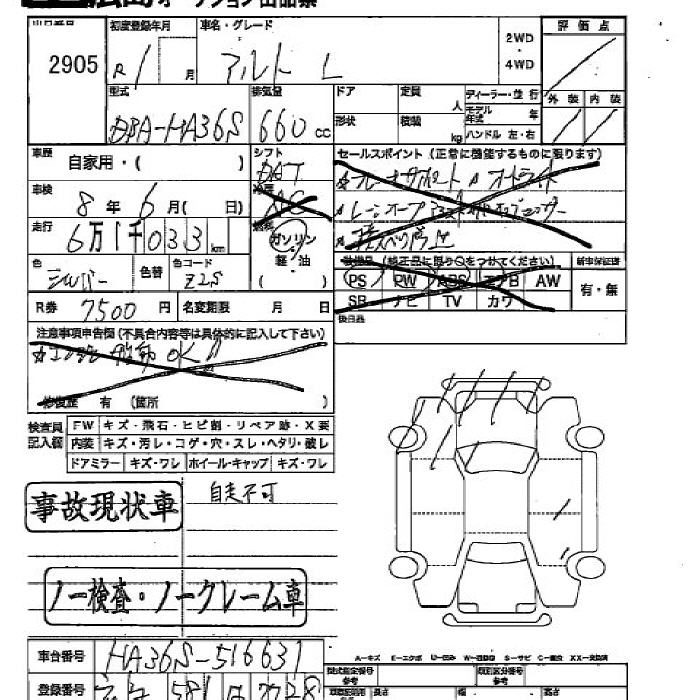 広島オークション出品票
2905
初度登録年月 車名・グレード 2WD・4WD 評価点
R1 月 アルト L
型式 排気量 ドア 定員 人 ディーラー・並行 外装 内装
DBA-HA36S 660 cc 形状 積載 kg モデル年式 年 ハンドル 左・右
車歴 自家用・( ) シフト セールスポイント (正常に機能するものに限ります)
車検 8年6月( 日) 冷房 AC
走行 6万1千033km 燃料 ガソリン 軽・油 ( )
装備品 (純正品に限り○をつけてください) 新車保証書
PS PW ABS エアB AW 有・無
SB ナビ TV カワ
色 シルバー 色替 色コード Z2S
R券 7500円 名変期限 月 日
後日品
注意事項申告欄 (不具合内容等は具体的に記入して下さい)
エンジン 始動 OK
修復歴 有 (箇所 )
検査員記入欄 FW キズ・飛石・ヒビ割・リペア跡・X要
内装 キズ・汚レ・コゲ・穴・スレ・ヘタリ・破レ
ドアミラー キズ・ワレ ホイール・キャップ キズ・ワレ
事故現状車 自走不可
ノー検査・ノークレーム車
A=キズ E=エクボ U=凹み W=波 S=サビ C=腐食 XX=交換済
車台番号 HA36S-516631
型式指定番号 参考 類別区分番号 参考
登録番号 581
長さ 幅 高さ